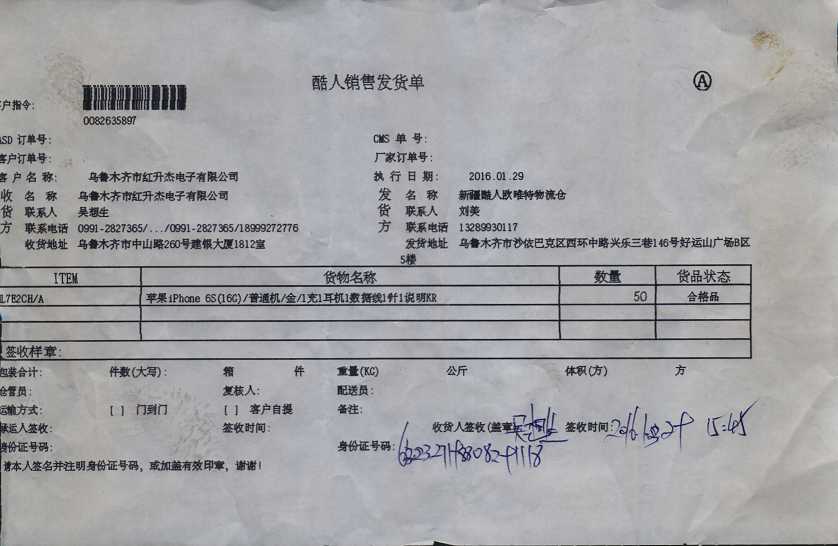 酷人销售发货单 Ⓐ
户指令:
0082635897
ASD 订单号: CMS 单 号:
客户订单号: 厂家订单号:
客 户 名 称: 乌鲁木齐市红升杰电子有限公司 执 行 日 期: 2016.01.29
收 名 称 乌鲁木齐市红升杰电子有限公司 发 名 称 新疆酷人欧唯特物流仓
货 联系人 吴想生 货 联系人 刘美
方 联系电话 0991-2827365/.../0991-2827365/18999272776 方 联系电话 13289930117
收货地址 乌鲁木齐市中山路260号建银大厦1812室 发货地址 乌鲁木齐市沙依巴克区西环中路兴乐三巷146号好运山广场B区
5楼
ITEM 货物名称 数量 货品状态
L7E2CH/A 苹果iPhone 6S(16G)/普通机/金/1充1耳机1数据线1针1说明KR 50 合格品
签收样章:
包装合计: 件数(大写): 箱 件 重量(KG) 公斤 体积(方) 方
仓管员: 复核人: 配送员:
运输方式: [ ] 门到门 [ ] 客户自提 备注:
承运人签收: 签收时间: 收货人签收(盖章) 签收时间: 15:45
身份证号码: 身份证号码:
请本人签名并注明身份证号码，或加盖有效印章，谢谢!